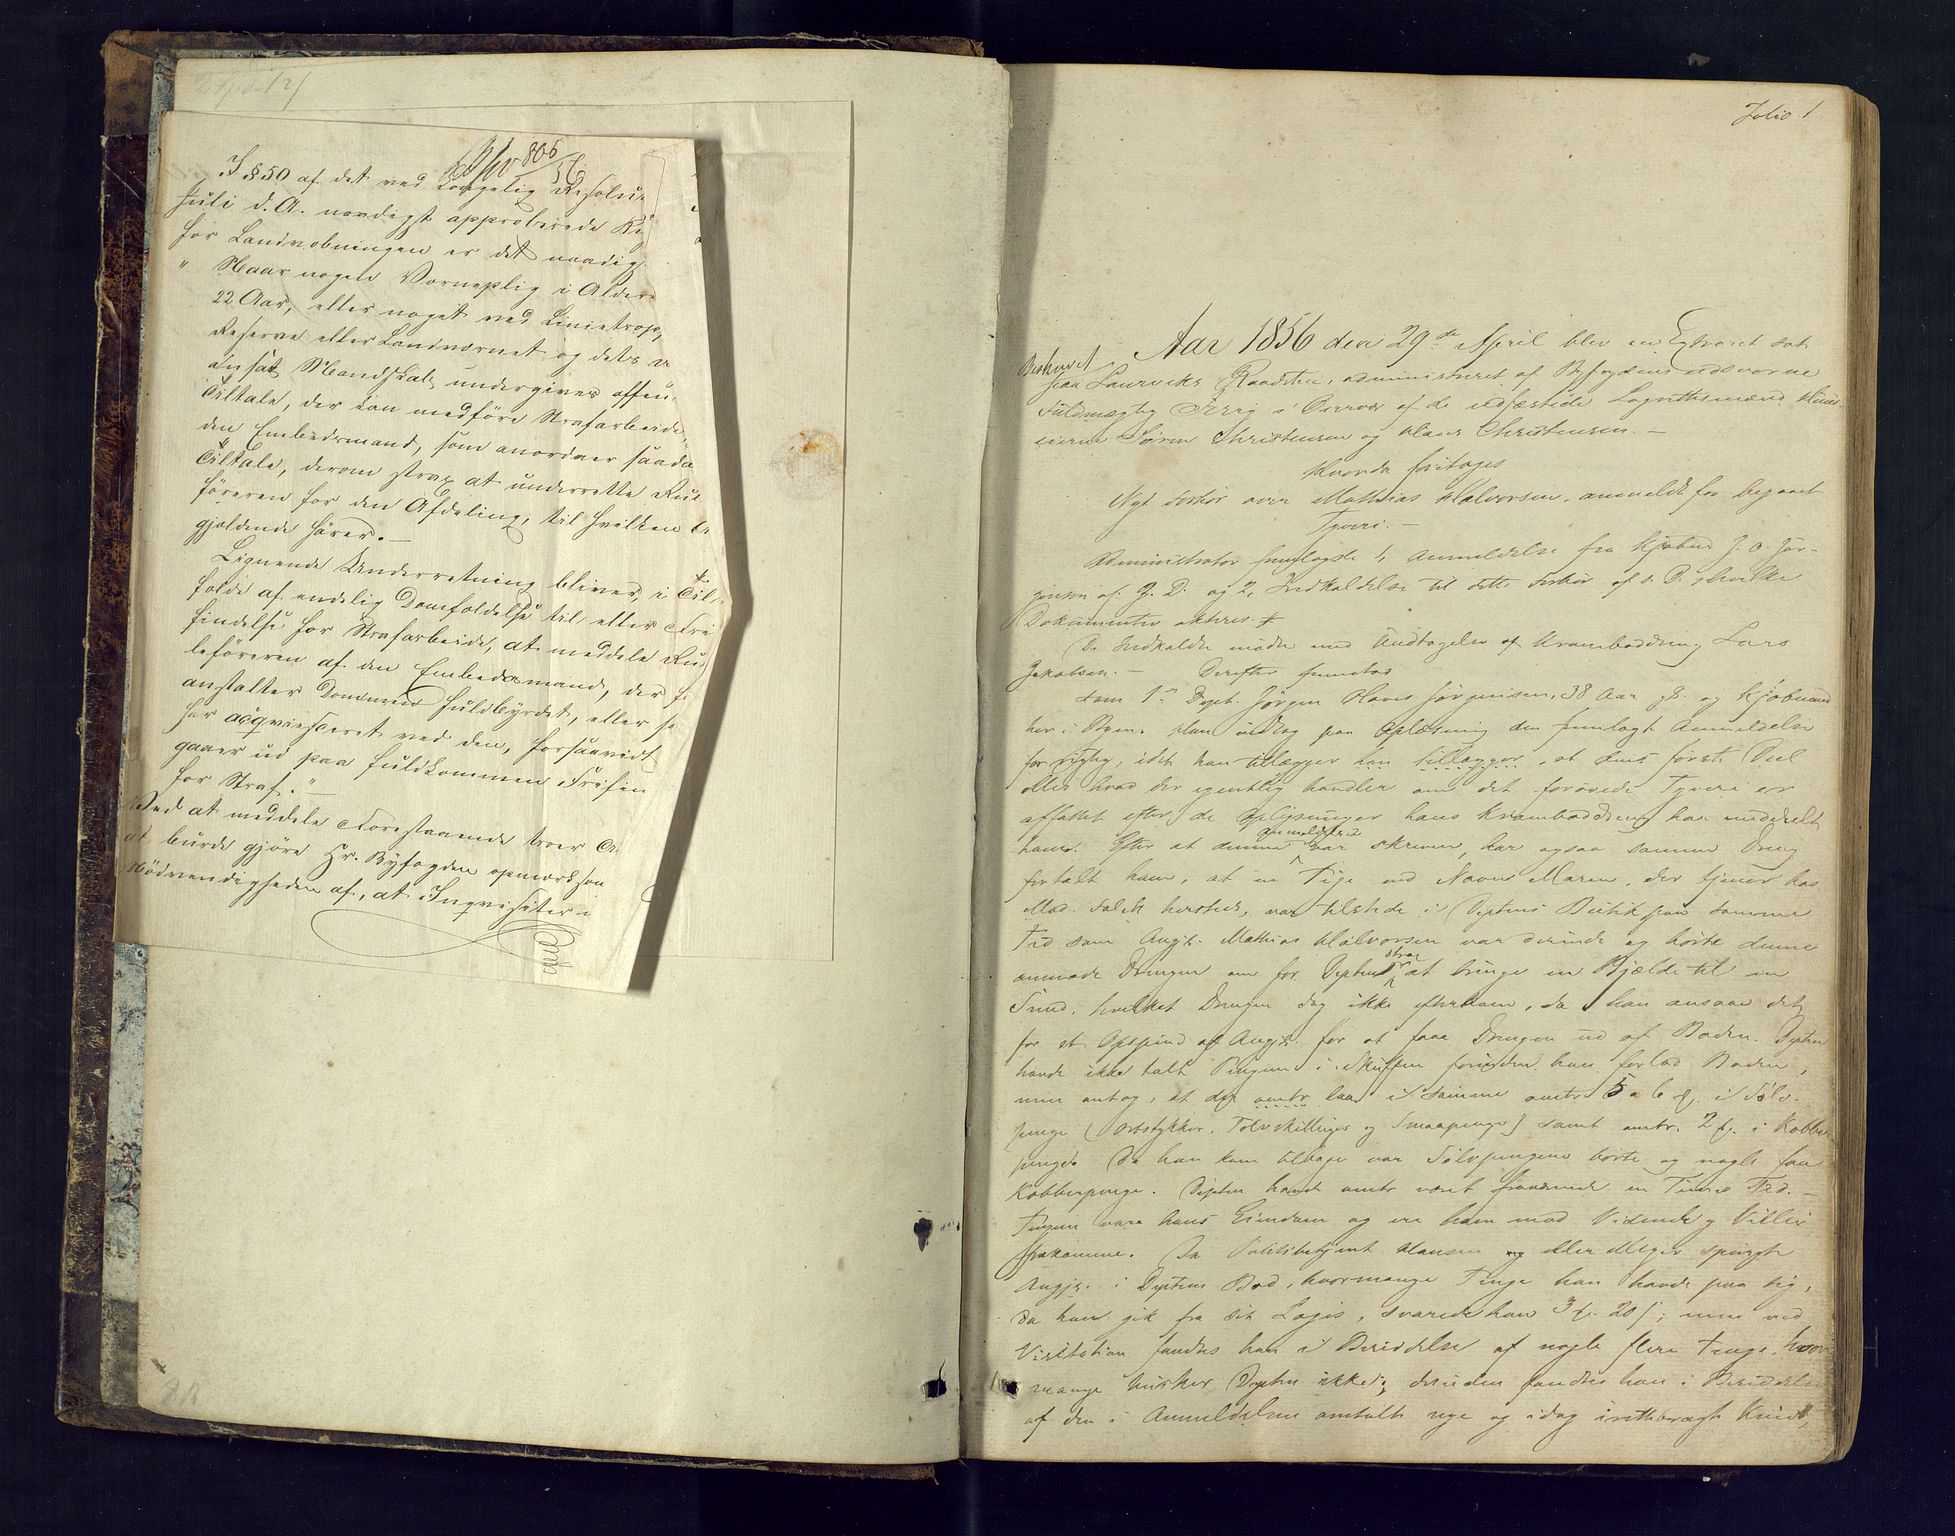 I § 50 af det ved Kongelig Resolu
Juli d. A. naadigst approberede Re
for Landvæbningen er det naadig
" Naar nogen Værnepligtig i Alder
22 Aar, eller noget ved Linietrop,
Reserve eller Landværnet og dets
ansat Mandskab undergives offen
Tiltale, der kan medføre Strafarbeide
den Embedsmand, som anordner saada
Tiltale, derom strax at underrette Rul
føreren for den Afdeling, til hvilken
gjældende hører. —
Lignende Underretning bliver, i Til-
fælde af endelig Domfældelse til eller Fri
findelse for Strafarbeide, at meddele Rul
leføreren af den Embedsmand, der
anstalter Dommen fuldbyrdet, eller
har acqviesceret ved den, forsaavidt
gaaer ud paa fuldkommen Frifin
for Straf." —
Ved at meddele Forestaaende troer
at burde gjøre Hr. Byfogden opmærksom
Nødvendigheden af, at Inqvisiter i
Folio 1
Aar 1856 den 29de April blev en Extraret sat
Beskrevet
paa Laurviks Raadstue, administreret af Byfogdens edsvorne
Fuldmægtig i Overvær af de edfæstede Laugrettesmænd
Søren Christensen og Claus Christensen. —
Hvorda foretoges
Nyt Forhør over Mathias Halvorsen, anmeldt for begaaet
Tyveri. —
Administrator fremlagde 1, Anmeldelse fra Kjøbmd J. H. Jør-
gensen af G. D. og 2, Indkaldelse til dette Forhør af s. D. hvilke
Dokumenter akteres.
De Indkaldte mødte med Undtagelse af Kramboddreng Lars
Jakobsen. — Derefter fremstod
som 1ste Dept. Jørgen Hans Jørgensen, 38 Aar gl. og Kjøbmand
her i Byen. Han vedtog paa Oplæsning den fremlagte Anmeldelse
for rigtig, idet han tilægger han tillægger, at dens første Deel
eller hvad der egentlig handler om det forøvede Tyveri er
affattet efter de Oplysninger hans Kramboddreng har meddeelt
ham. Efter at denne Anmeldelse var skreven, har ogsaa samme Dreng
fortalt ham, at en Pige ved Navn Maren, der tjener hos
Mad. Falck hersteds, var tilstede i Deptens Butik paa samme
Tid som Angjs. Mathias Halvorsen var derinde og hørte denne
anmode Drengen om for Depten strax at bringe en Bjælde til en
hvilket Drengen dog ikke efterkom, da han ansaae det
for et Opspind af Angjs. for at faae Drengen ud af Boden. Depten
havde ikke talt Pengene i Skuffen forinden han forlod Boden,
men antog, at der omtr laae i samme omtr 5 a 6 i Sølv-
penge (Ortstykker, Tolvskillinger og Smaapenge) samt omtr. 2 i Kobber
penge. Da han kom tilbage var Sølvpengene borte og nogle faa
Kobberpenge. Depten havde omtr været fraværende en Times Tid. —
Pengene vare hans Eiendom og ere ham mod Vidende og Villie
frakomne. Da Politibetjent Hansen og eller Meyer spurgte
Angjs. i Deptens Bod, hvormange Penge han havde paa sig,
da han gik fra sit Logis, svarede han 3 20; men ved
Visitation fandtes han i Besiddelse af nogle flere Penge, hvor
mange husker Depten ikke; desuden fandtes han i Besiddelse
af den i Anmeldelsen omtalte nye og idag i retteb­ragt Kniv,